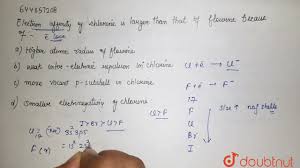 644857208
Electron affinity of chlorine is larger than that of fluorine because
of -
a) Higher atomic radius of fluorine
b) weak inter-electronic repulsion in chlorine
c) more vacant p-subshell in chlorine
d) Smaller electronegativity of chlorine
Cl + e⁻ → Cl⁻
F + e⁻ → F⁻
17
F
Cl
Br
I
Size ↑
Cl > F
I > Br > Cl > F
doubtnut